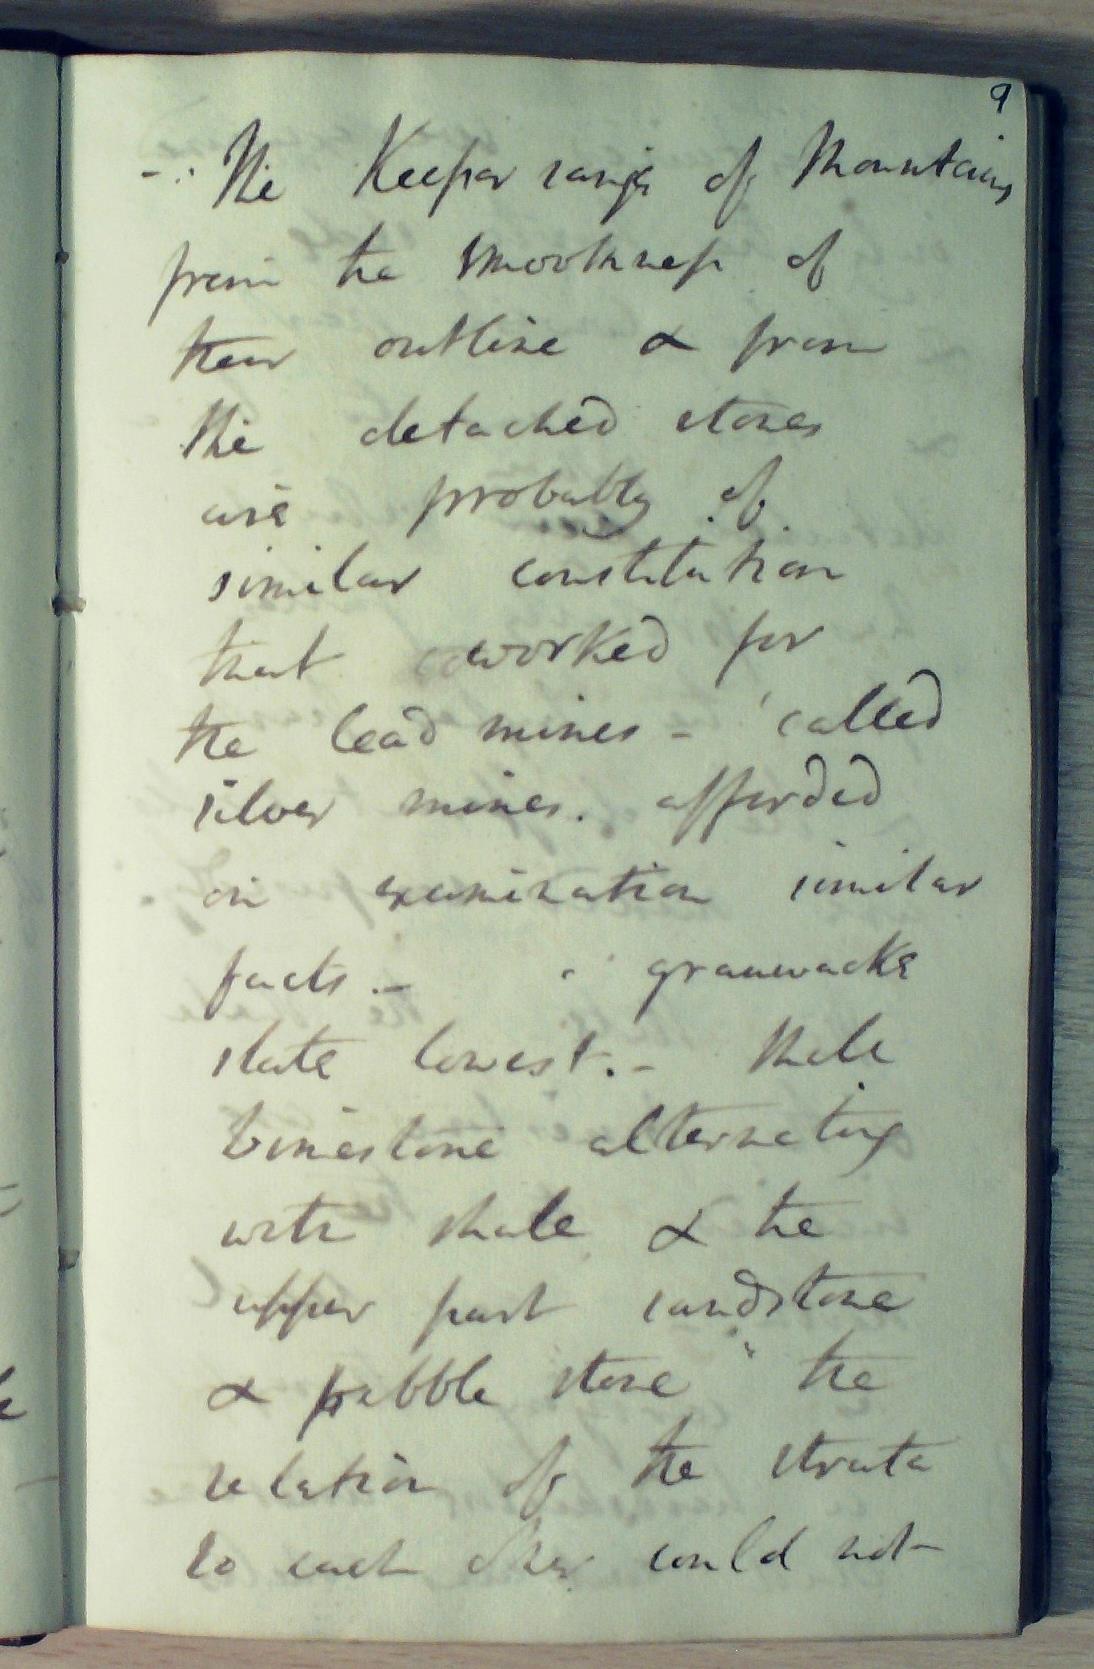 9
- The Keeper range of Mountains
from the smoothness of
their outline & from
the detached stones
are probably of
similar constitution
that worked for
the lead mines - called
silver mines. afforded
on examination similar
facts. - grauwacke
slate lowest. - Shale
limestone alternating
with shale & the
upper part sandstone
& pebble stone the
relation of the strata
to each other could not